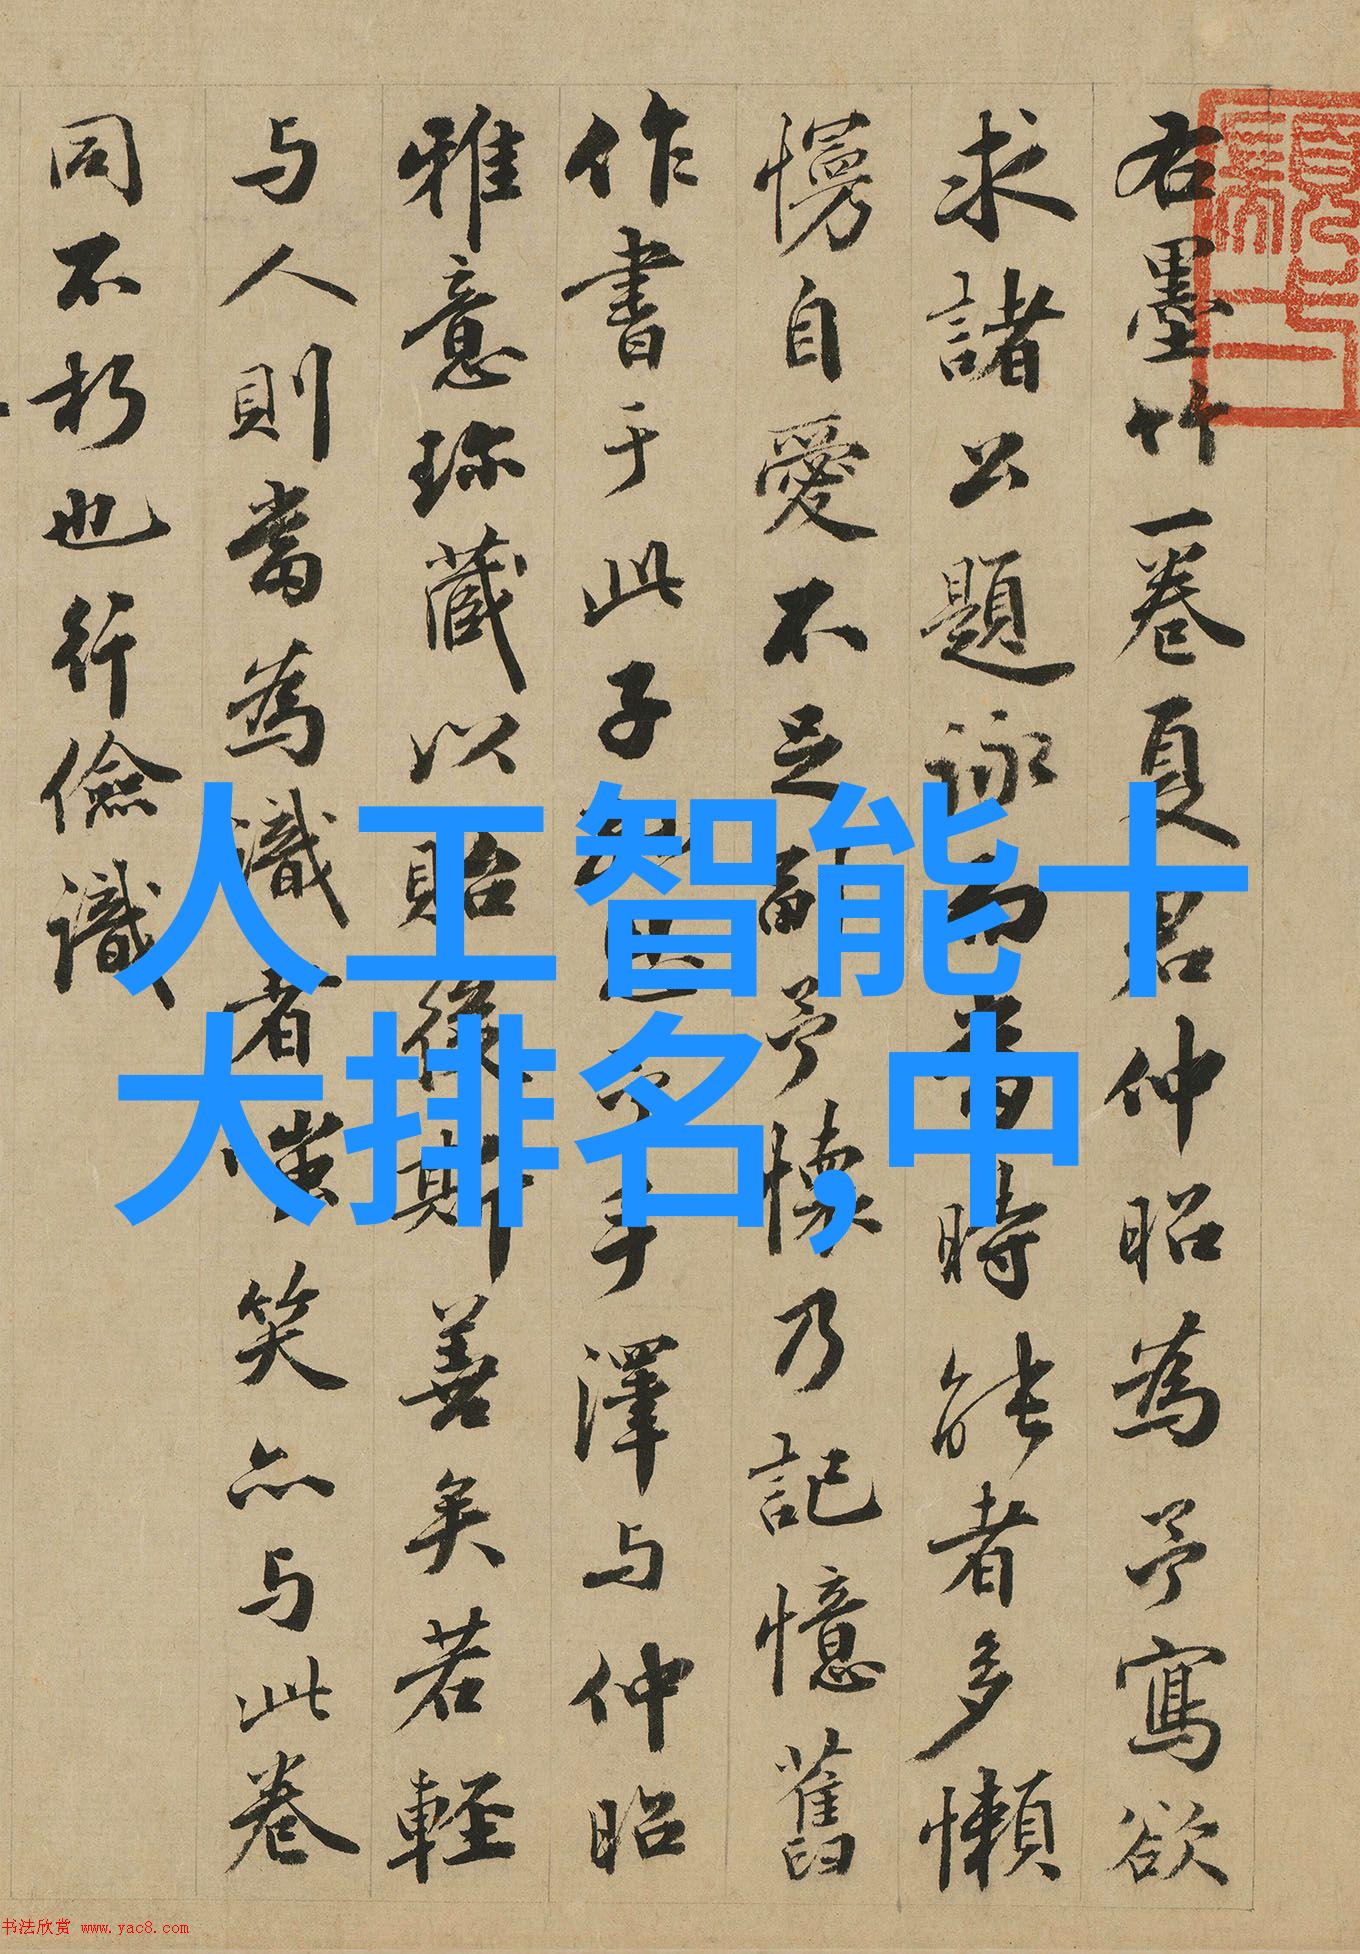 右墨竹一卷夏君仲昭為予寫欲
求諸公題詠而當時能者多懶
慢自愛不足副予懷乃記憶舊
作書于此子手澤与仲昭
雅意珎藏以貽後斯善矣若輕
与人則當為識者嗤笑亦与此卷
同不朽也行儉識
人工智能十
大排名,中
书法欣赏 www.yac8.com